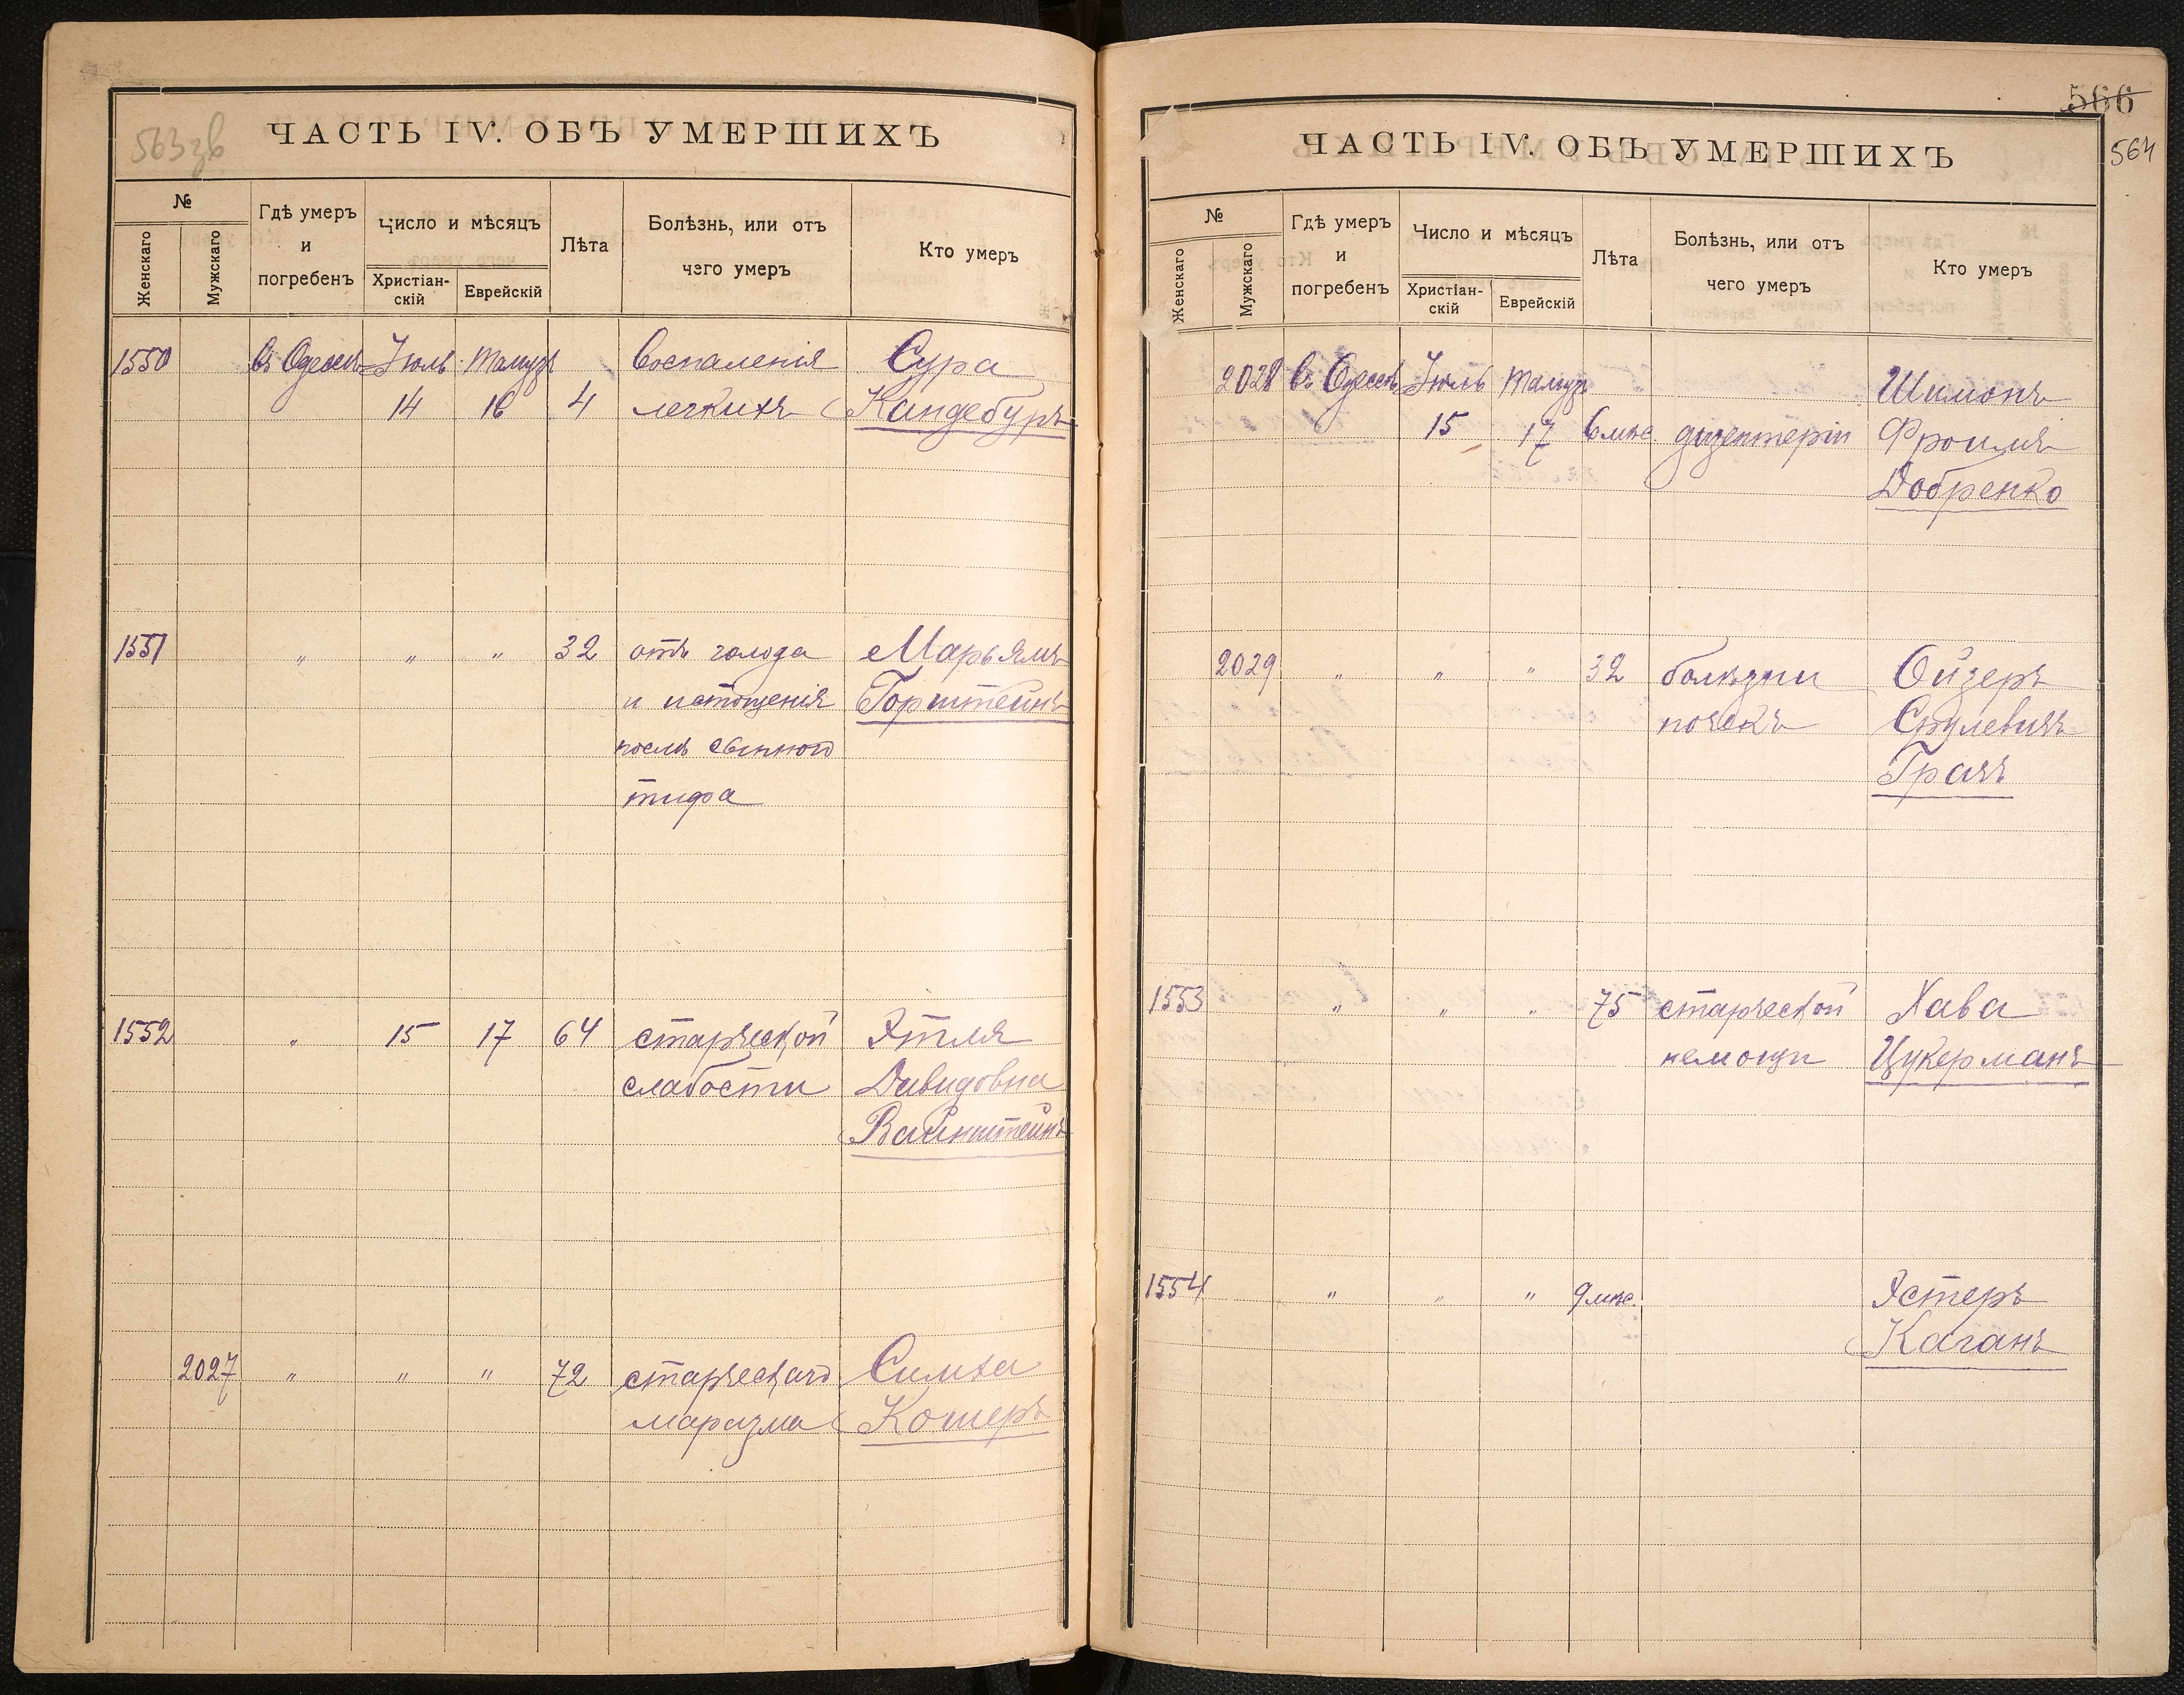 563 зв
ЧАСТЬ IV. ОБЪ УМЕРШИХЪ
№
Женскаго
Мужскаго
Гдѣ умеръ и погребенъ
Число и мѣсяцъ
Христіан-скій
Еврейскій
Лѣта
Болѣзнь, или отъ чэго умеръ
Кто умеръ
1550 въ Одессѣ Іюль Тамузъ воспаленія Сура
14 16 4 легкихъ Кандебуръ
1551 " " " 32 отъ голода Марьямъ
и истощенія Горштейнъ
послѣ сыпного
тифа
1552 " 15 17 64 старческой Этля
слабости Давидовна
Вайнштейнъ
2027 " " " 72 старческаго Симха
маразма Кошеръ
566
564
ЧАСТЬ IV. ОБЪ УМЕРШИХЪ
№
Женскаго
Мужскаго
Гдѣ умеръ и погребенъ
Число и мѣсяцъ
Христіан-скій
Еврейскій
Лѣта
Болѣзнь, или отъ чего умеръ
Кто умеръ
2028 въ Одессѣ Іюль Тамузъ Шимонъ
15 17 6 мѣс. дизентеріи Фроимъ
Добренко
2029 " " " 32 болѣзни Ойзеръ
почекъ Срулевичъ
Грачъ
1553 " " " 75 старческой Хава
немощи Цукерманъ
1554 " " " 9 мѣс. Эстеръ
Каганъ